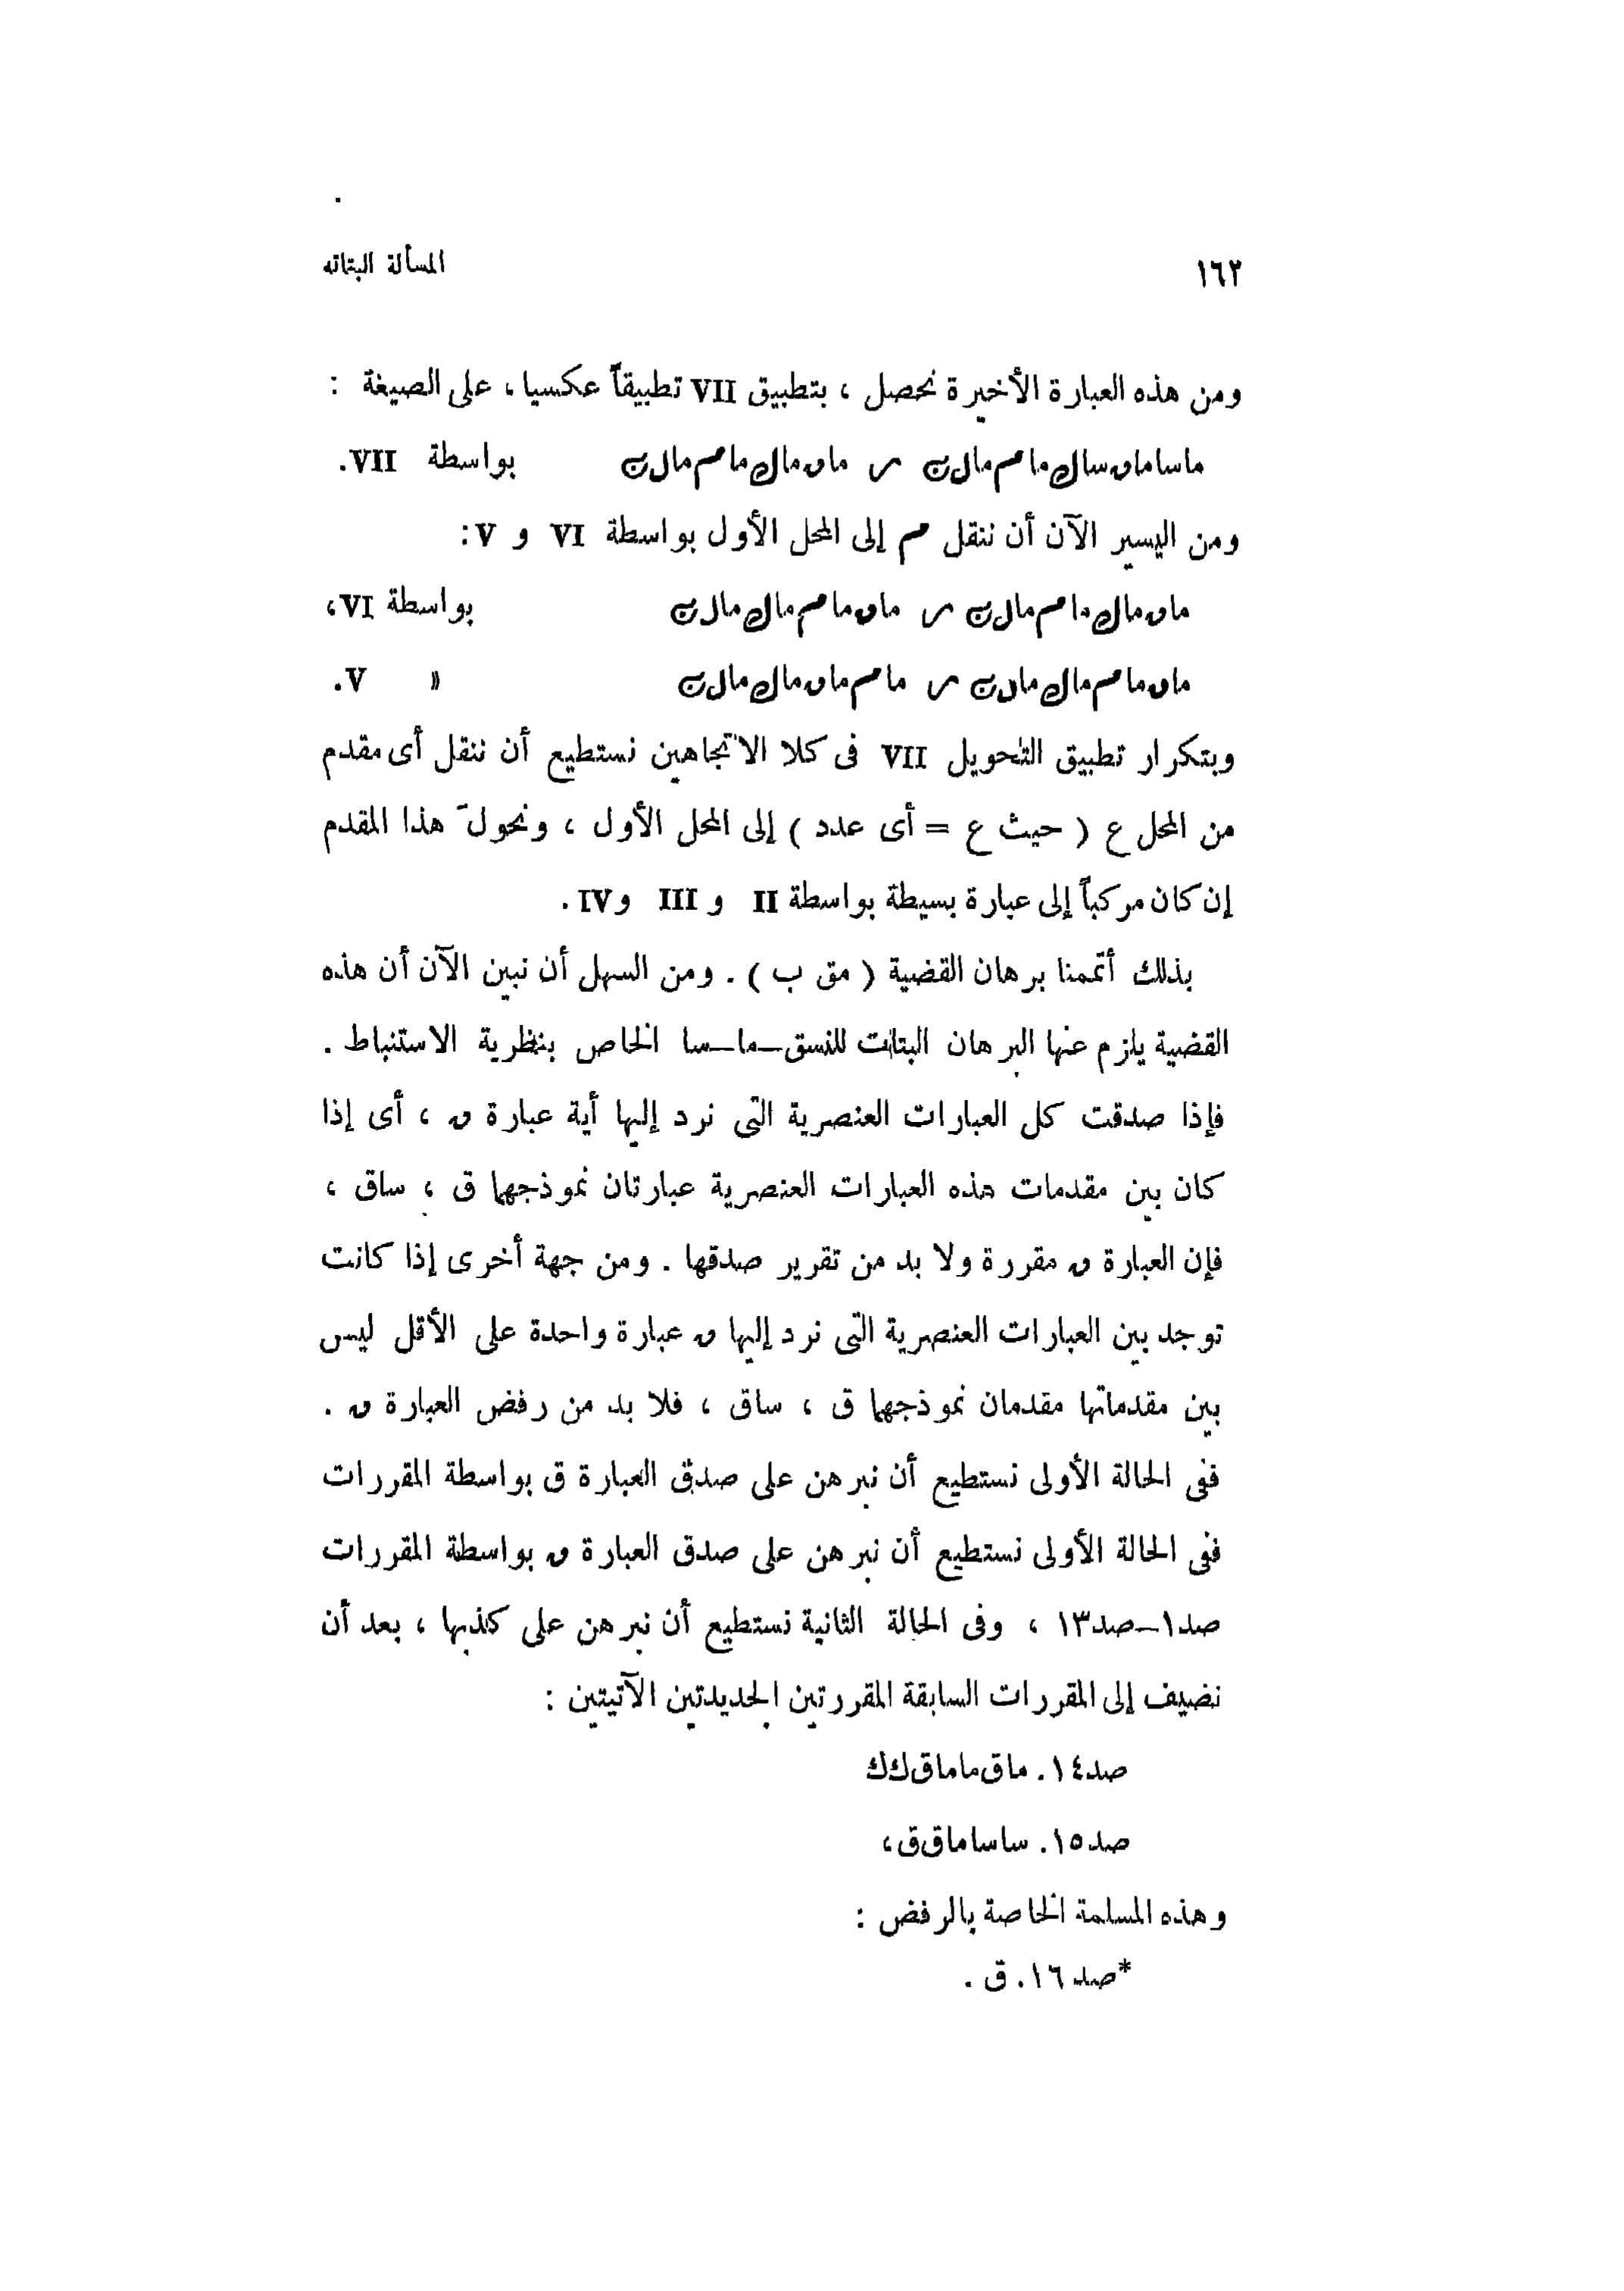 ١٦٢ المسألة البتاته
ومن هذه العبارة الأخيرة نحصل ، بتطبيق VII تطبيقاً عكسيا ، على الصيغة :
بواسطة VII.
ومن اليسير الآن أن ننقل م إلى المحل الأول بواسطة VI و V:
بواسطة VI،
» V.
وبتكرار تطبيق التحويل VII فى كلا الاتجاهين نستطيع أن ننقل أى مقدم
من المحل ع ( حيث ع = أى عدد ) إلى المحل الأول ، ونحولَ هذا المقدم
إن كان مركباً إلى عبارة بسيطة بواسطة II و III و IV .
بذلك أتممنا برهان القضية ( مق ب ) . ومن السهل أن نبين الآن أن هذه
القضية يلزم عنها البرهان البتات للنسق–ما–سا الخاص بنظرية الاستنباط .
فإذا صدقت كل العبارات العنصرية التى نرد إليها أية عبارة ں ، أى إذا
كان بين مقدمات هذه العبارات العنصرية عبارتان نموذجهما ق ، ساق ،
فإن العبارة ں مقررة ولا بد من تقرير صدقها . ومن جهة أخرى إذا كانت
توجد بين العبارات العنصرية التى نرد إليها ں عبارة واحدة على الأقل ليس
بين مقدماتها مقدمان نموذجهما ق ، ساق ، فلا بد من رفض العبارة ں .
ففى الحالة الأولى نستطيع أن نبرهن على صدق العبارة ق بواسطة المقررات
ففى الحالة الأولى نستطيع أن نبرهن على صدق العبارة ں بواسطة المقررات
صد١–صد١٣ ، وفى الحالة الثانية نستطيع أن نبرهن على كذبها ، بعد أن
نضيف إلى المقررات السابقة المقررتين الجديدتين الآتيتين :
صد١٤. ماق‌ماماق‌ك‌ك
صد١٥. ساساماق‌ق،
وهذه المسلمة الخاصة بالرفض :
*صد١٦. ق .